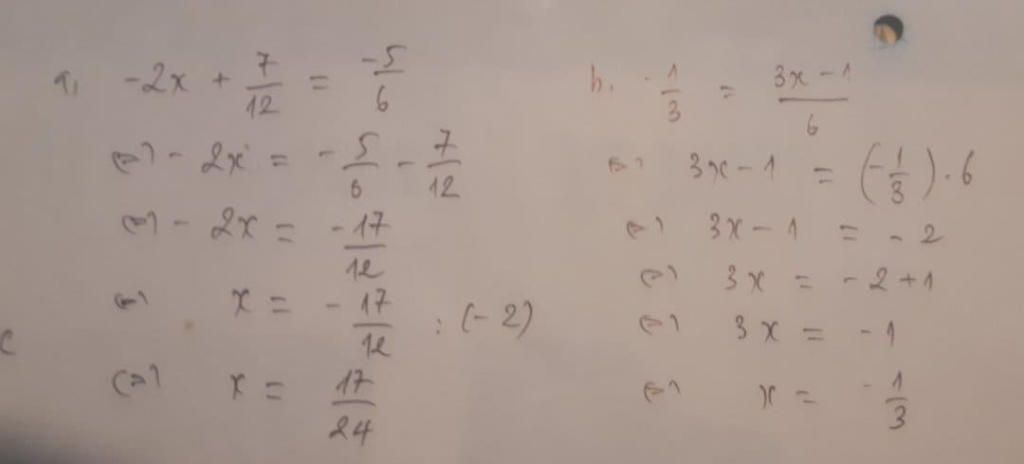 a, -2x + 7/12 = -5/6
<=> - 2x = - 5/6 - 7/12
<=> - 2x = -17/12
<=> x = - 17/12 : (- 2)
<=> x = 17/24
b. - 1/3 = 3x - 1/6
<=> 3x - 1 = (- 1/3) . 6
<=> 3x - 1 = - 2
<=> 3x = - 2 + 1
<=> 3x = - 1
<=> x = - 1/3
c